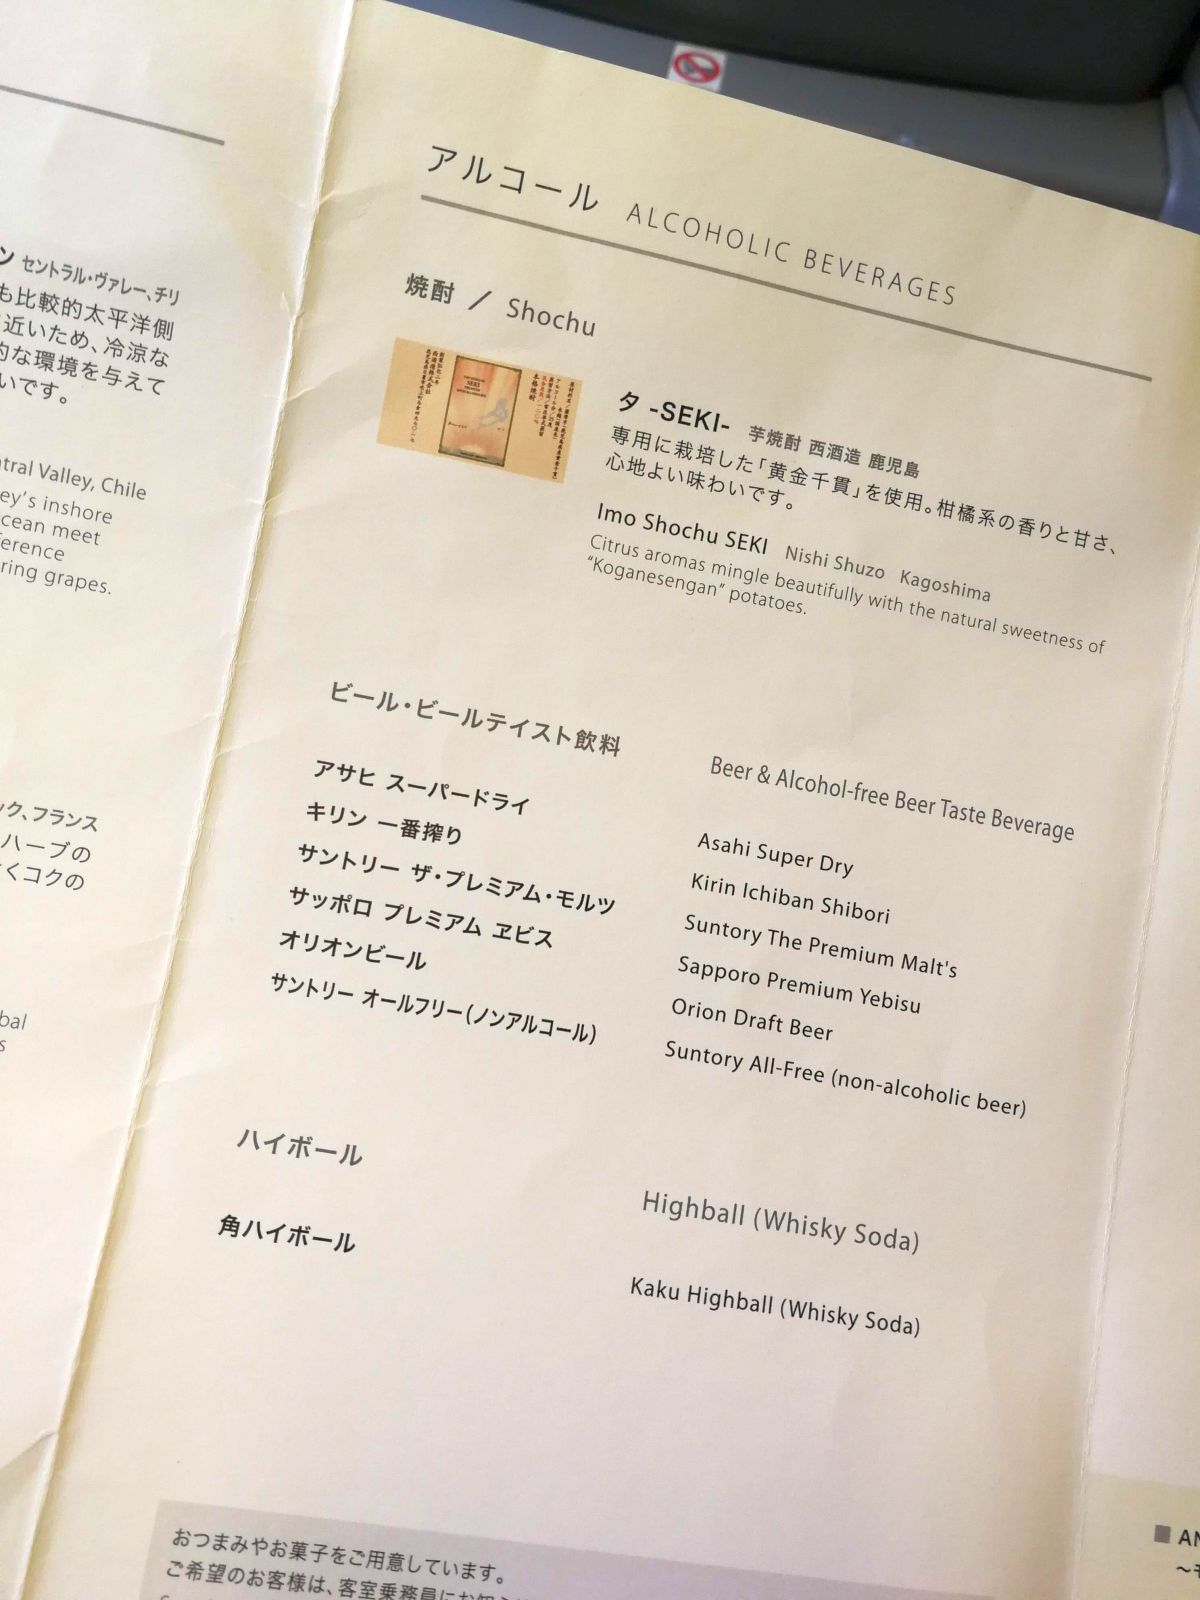 ン セントラル・ヴァレー、チリ
も比較的太平洋側
近いため、冷涼な
的な環境を与えて
いです。
ntral Valley, Chile
ey's inshore
cean meet
ference
ring grapes.
ック、フランス
ハーブの
くコクの
bal
s
アルコール ALCOHOLIC BEVERAGES
焼酎 / Shochu
SEKI
本格焼酎
夕 -SEKI- 芋焼酎 西酒造 鹿児島
専用に栽培した「黄金千貫」を使用。柑橘系の香りと甘さ、
心地よい味わいです。
Imo Shochu SEKI Nishi Shuzo Kagoshima
Citrus aromas mingle beautifully with the natural sweetness of
“Koganesengan” potatoes.
ビール・ビールテイスト飲料 Beer & Alcohol-free Beer Taste Beverage
アサヒ スーパードライ Asahi Super Dry
キリン 一番搾り Kirin Ichiban Shibori
サントリー ザ・プレミアム・モルツ Suntory The Premium Malt's
サッポロ プレミアム ヱビス Sapporo Premium Yebisu
オリオンビール Orion Draft Beer
サントリー オールフリー(ノンアルコール) Suntory All-Free (non-alcoholic beer)
ハイボール Highball (Whisky Soda)
角ハイボール Kaku Highball (Whisky Soda)
おつまみやお菓子をご用意しています。
ご希望のお客様は、客室乗務員にお知
■ AN